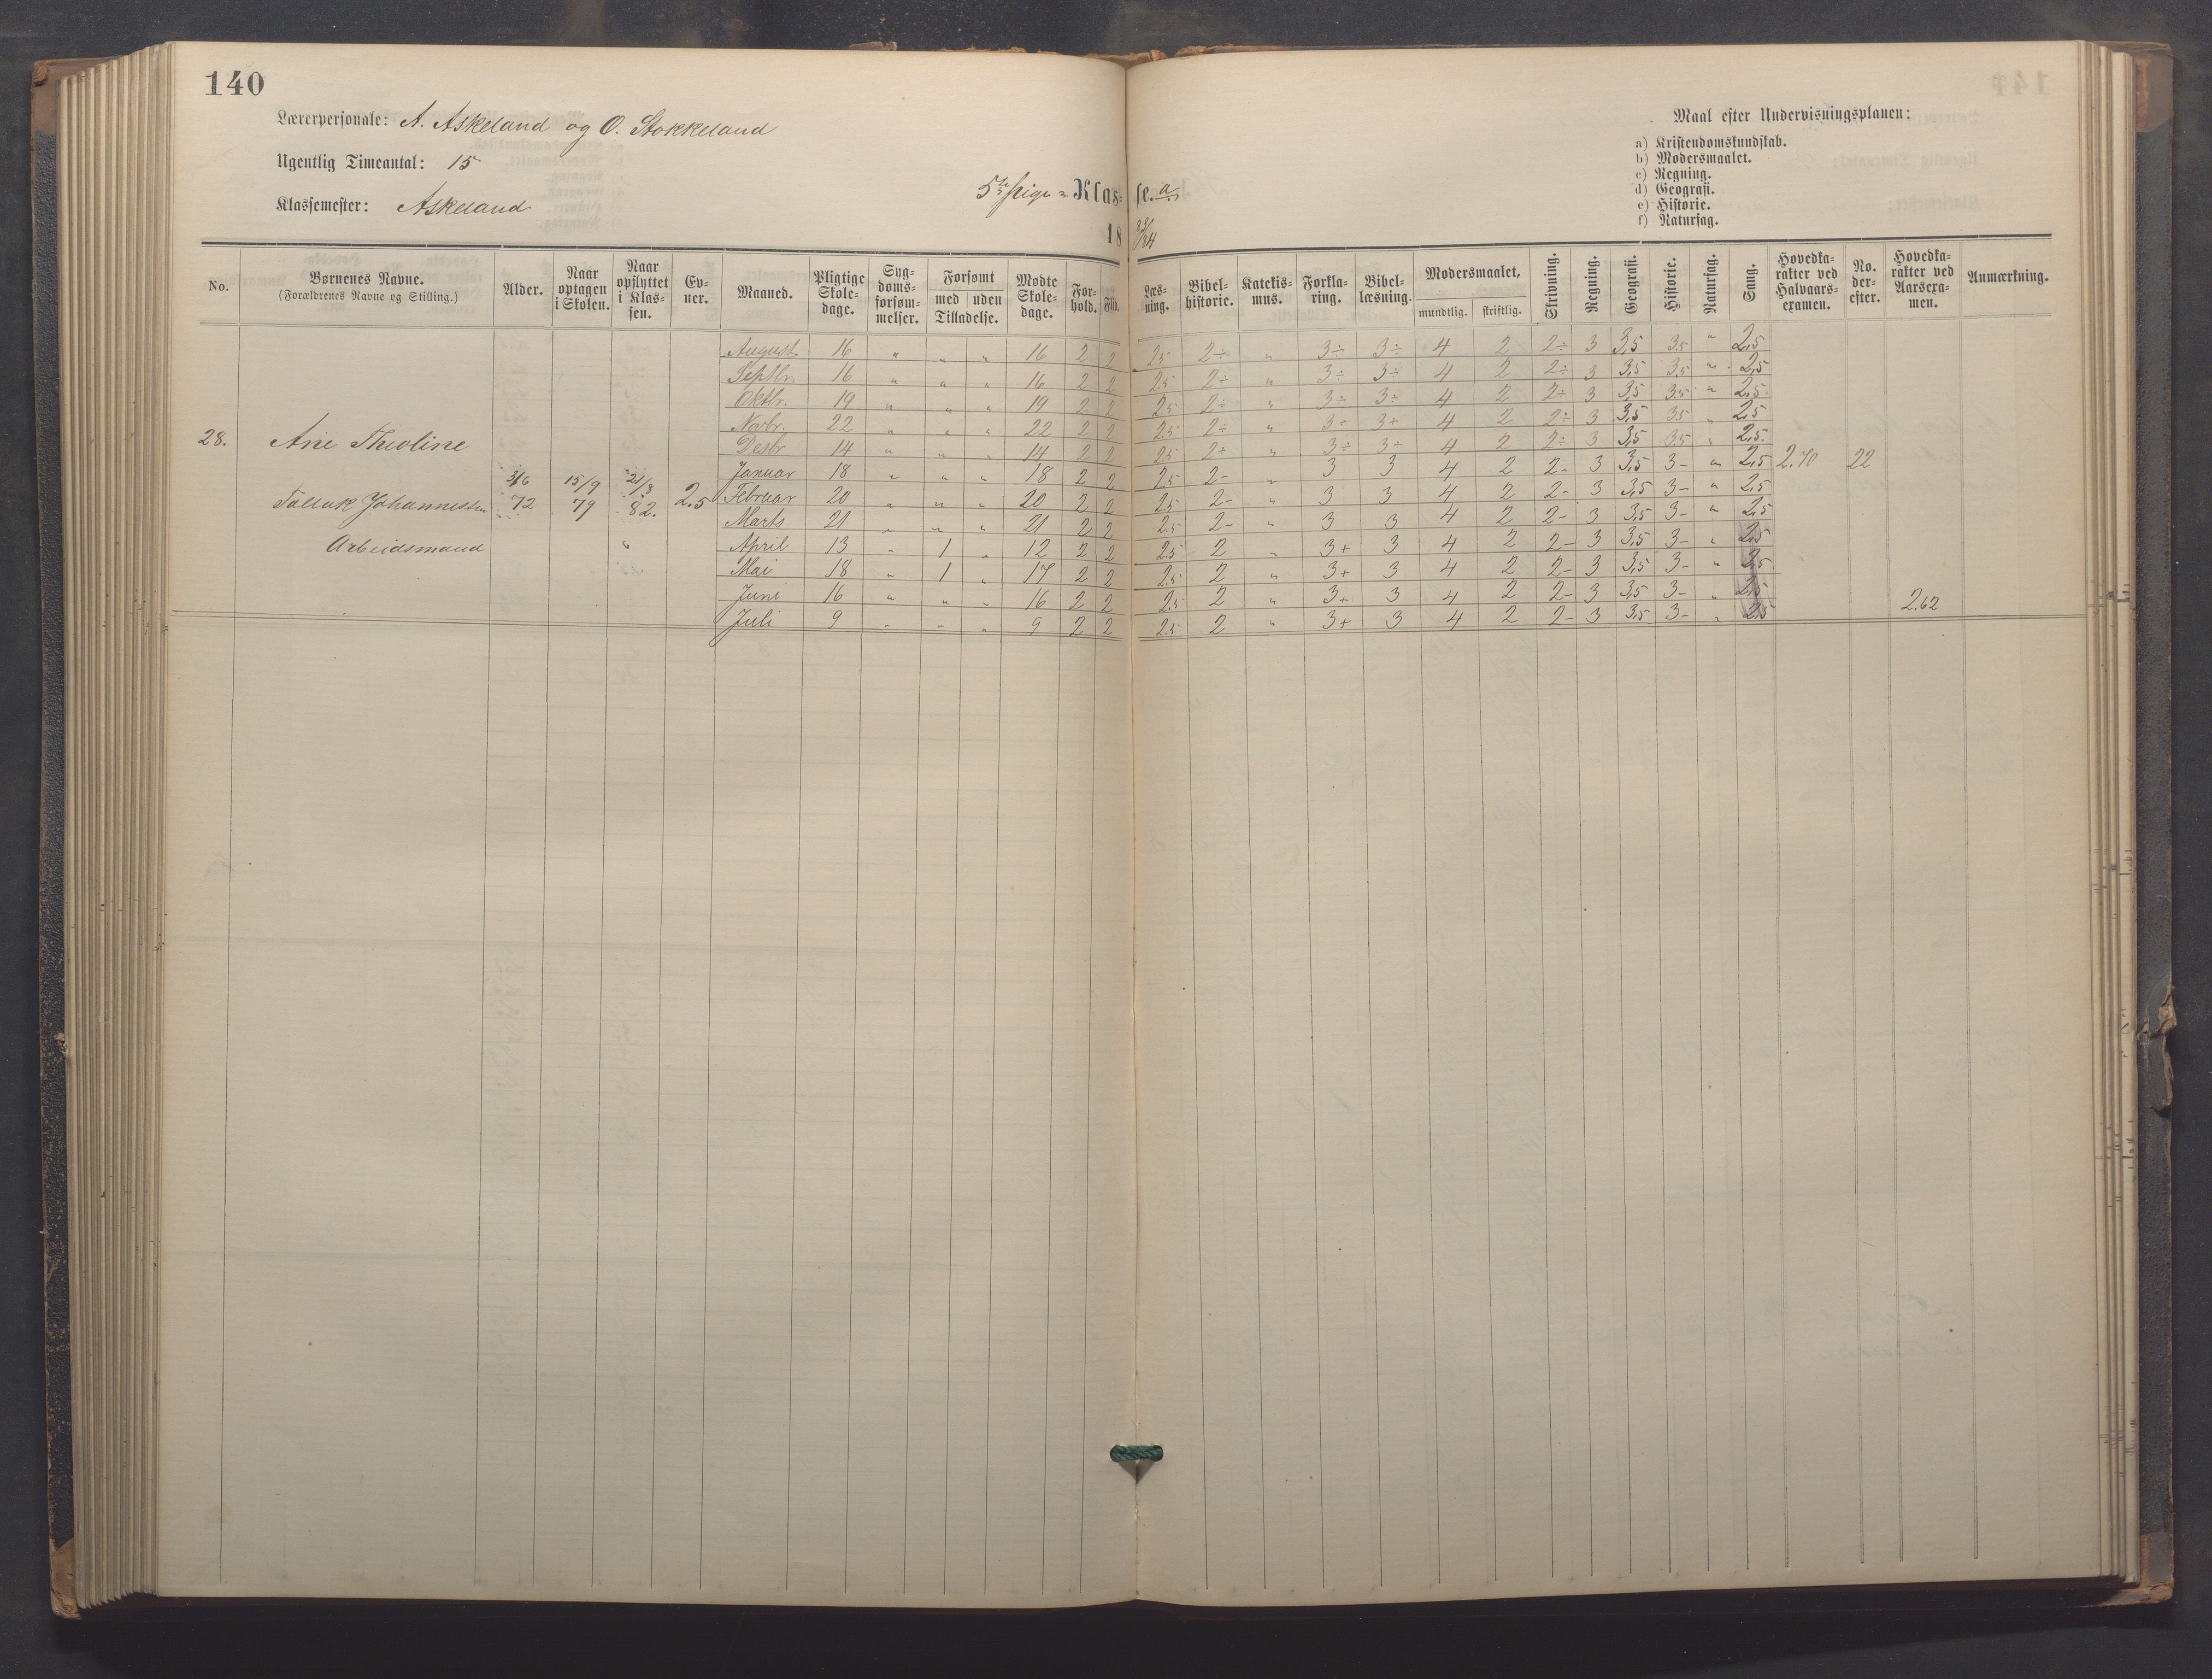 140
Lærerpersonale: A. Askeland og O. Stokkeland
Ugentlig Timeantal: 15
Klassemester: Askeland
5te Pige = Klasse. a
18 83/84
Maal efter Undervisningsplanen:
a) Kristendomskundskab.
b) Modersmaalet.
c) Regning.
d) Geografi.
e) Historie.
f) Naturfag.
No. Børnenes Navne. (Forældrenes Navne og Stilling.) Alder. Naar optagen i Skolen. Naar opflyttet i Klassen. Evner. Maaned. Pligtige Skoledage. Sygdomsforsømmelser. Forsømt med uden Tilladelse. Mødte Skoledage. Forhold. Flid. Læsning. Bibelhistorie. Katekismus. Forklaring. Bibellæsning. Modersmaalet, mundtlig. skriftlig. Skrivning. Regning. Geografi. Historie. Naturfag. Sang. Hovedkarakter ved Halvaarsexamen. No. derefter. Hovedkarakter ved Aarsexamen. Anmærkning.
August 16 " " " 16 2 2 2.5 2÷ " 3÷ 3÷ 4 2 2÷ 3 3,5 3.5 " 2,5
Septbr. 16 " " " 16 2 2 2.5 2÷ " 3÷ 3÷ 4 2 2÷ 3 3,5 3.5 " 2,5
Oktbr. 19 " " " 19 2 2 2.5 2÷ " 3÷ 3÷ 4 2 2÷ 3 3,5 3.5 " 2,5
Novbr. 22 " " " 22 2 2 2.5 2÷ " 3÷ 3÷ 4 2 2÷ 3 3,5 3.5 " 2,5
28. Ane Theoline
Desbr 14 " " " 14 2 2 2.5 2÷ " 3÷ 3÷ 4 2 2÷ 3 3,5 3.5 " 2,5
3/6 15/9 21/8 Januar 18 " " " 18 2 2 2.5 2- " 3 3 4 2 2- 3 3,5 3- " 2,5 2.70 22
Tallak Johannessen 72 79 82. 2.5 Februar 20 " " " 20 2 2 2.5 2- " 3 3 4 2 2- 3 3,5 3- " 2,5
Marts 21 " " " 21 2 2 2.5 2- " 3 3 4 2 2- 3 3,5 3- " 2,5
Arbeidsmand April 13 " 1 " 12 2 2 2.5 2 " 3+ 3 4 2 2- 3 3,5 3- " 2,5
Mai 18 " 1 " 17 2 2 2.5 2 " 3+ 3 4 2 2- 3 3,5 3- " 2,5
Juni 16 " " " 16 2 2 2.5 2 " 3+ 3 4 2 2- 3 3,5 3- " 2,5
Juli 9 " " " 9 2 2 2.5 2 " 3+ 3 4 2 2- 3 3,5 3- " 2,5 2.62